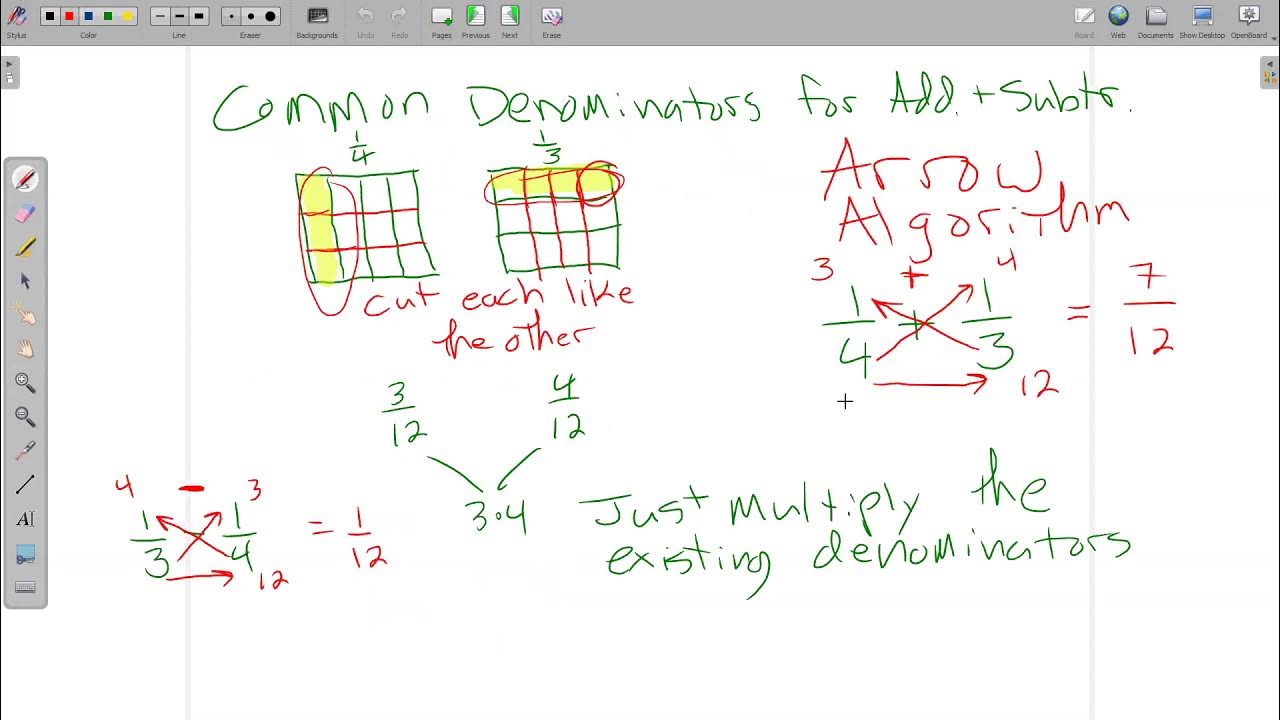 Stylus
Color
Line
Eraser
Backgrounds
Undo
Redo
Pages
Previous
Next
Erase
Board
Web
Documents
Show Desktop
OpenBoard
Common Denominators for Add. + Subtr.
1/4
1/3
Arrow
Algorithm
cut each like
the other
3 + 4
1/4 + 1/3 = 7/12
12
3/12
4/12
3·4
Just multiply the
existing denominators
4 - 3
1/3 - 1/4 = 1/12
12